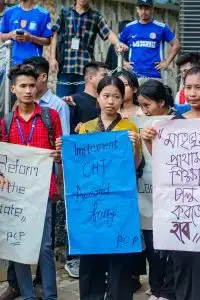 Reform
the
state
P.C.P
Implement
CHT
Accord
fully
P.C.P
প্রাথমি
শিক্ষা
চালু
করতে
হবে